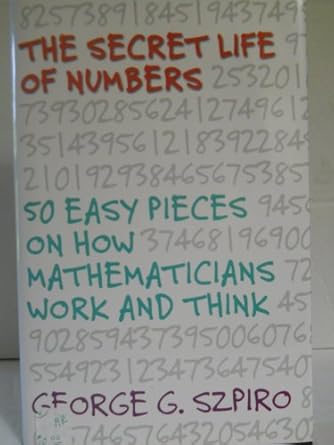 THE SECRET LIFE
OF NUMBERS 253201
7393028562412749612
351439561218392284
210192938465675385
50 EASY PIECES 945
ON HOW 37468196900
MATHEMATICIANS 72
WORK AND THINK 45
902859437395006076
554923123473647540
GEORGE G. SZPIRO